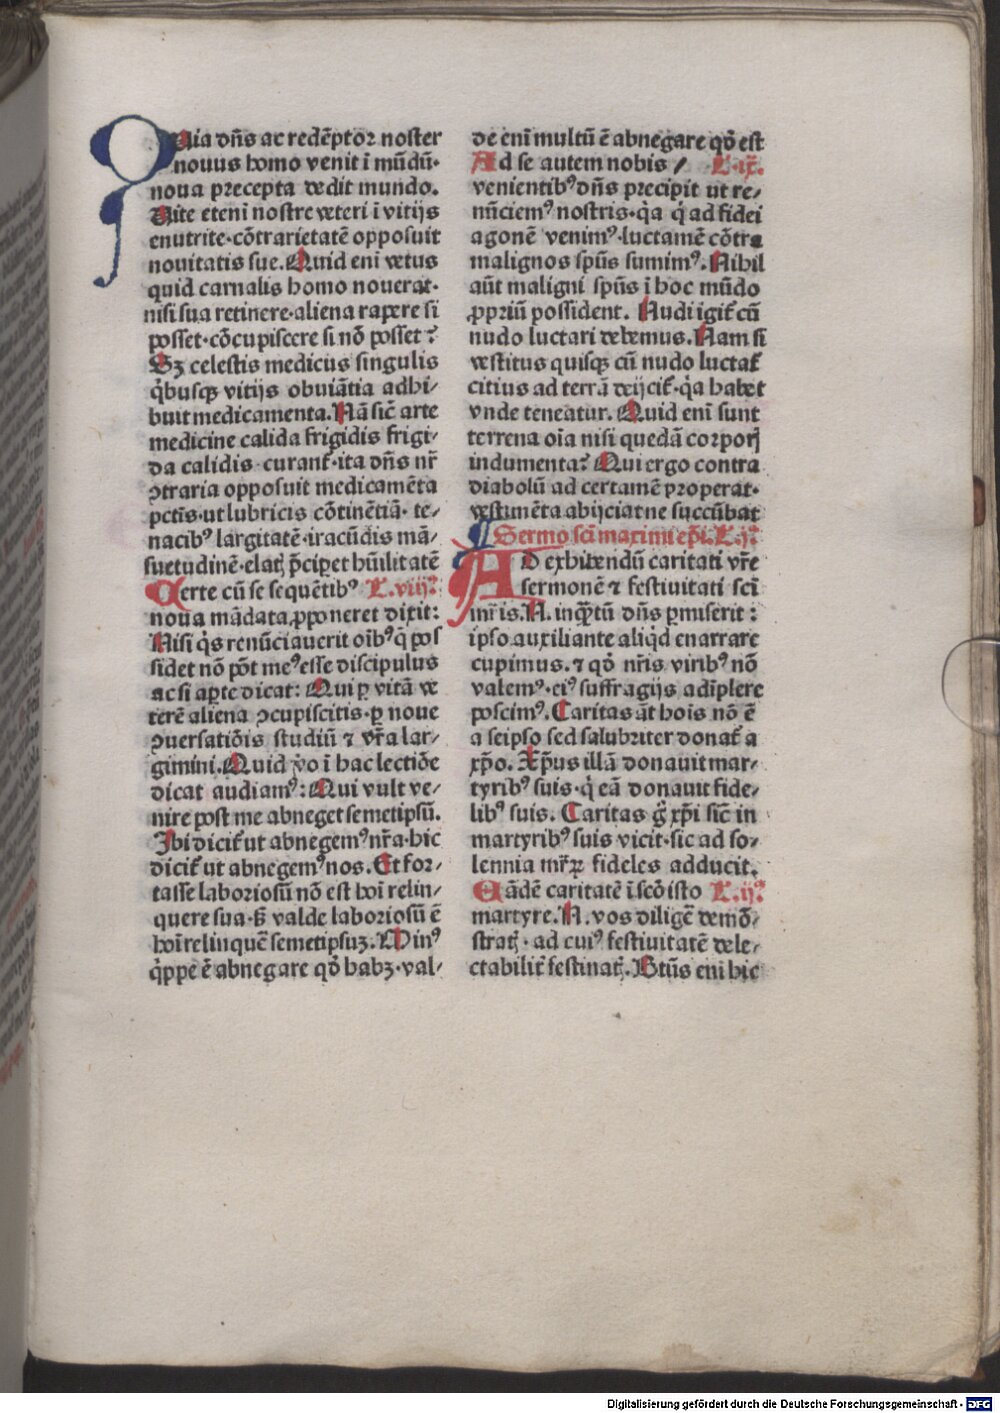 Quia dn̄s ac redēptor noster
nouus homo venit ī mūdū·
noua precepta dedit mundo.
Vite etenī nostre veteri ī vitijs
enutrite·cōtrarietatē opposuit
nouitatis sue. Quid enī vetus
quid carnalis homo nouerat·
nisi sua retinere·aliena rapere si
posset·cōcupiscere si nō posset?
Sꝫ celestis medicus singulis
q̇busqꝫ vitijs obuiātia adhi/
buit medicamenta. Nā sic̄ arte
medicine calida frigidis frigi/
da calidis curant᷑·ita dn̄s nr̄
ꝯtraria opposuit medicamēta
pctīs·ut lubricis cōtinētiā· te/
nacibꝰ largitatē·iracūdis mā/
suetudinē·elatꝭ p̄ciperet hūilitatē
Certe cū se sequētibꝰ L.viij?
noua mādata ꝓponeret dixit:
Nisi q̇s renūciauerit oībꝰ q̄ pos
sidet nō pōt meꝰ esse discipulus
ac si aꝑte dicat: Qui ꝑ vitā ve
terē aliena ꝯcupiscitis·ꝑ noue
ꝯuersatiōis studiū ⁊ vr̄a lar/
gimini. Quid v̊o ī hac lectiōe
dicat audiamꝰ: Qui vult ve/
nire post me abneget semetipsū.
Ibi dicit᷑ ut abnegemꝰ nr̄a·hic
dicit᷑ ut abnegemꝰ nos. Et for/
tasse laboriosū nō est hoī relin/
quere sua·sꝫ valde laboriosū ē
hoī relinquē semetipsuꝫ. Minꝰ
q̇ppe ē abnegare qd̄ habꝫ·val/
de enī multū ē abnegare qd̄ est
Ad se autem nobis / L.ix.
venientibꝰ dn̄s precipit ut re/
nūciemꝰ nostris·q̇a q̇ ad fidei
agonē venimꝰ·luctamē cōtra
malignos spūs sumimꝰ. Nihil
aūt maligni spūs ī hoc mūdo
ꝓpriū possident. Nudi igit᷑ cū
nudo luctari debemus. Nam si
vestitus quisqꝫ cū nudo luctat᷑
citius ad terrā deijcit᷑·q̇a habet
vnde teneatur. Quid enī sunt
terrena oīa nisi quedā corporꝭ
indumenta? Qui ergo contra
diabolū ad certamē properat·
vestimēta abijciat ne succūbat
¶ Sermo scī maximi ep̄i. L.ij?
Ad exhibendū caritati vr̄e
sermonē ⁊ festiuitati scī
mr̄is. N. inqꝫtū dn̄s ꝑmiserit:
ipso auxiliante aliq̇d enarrare
cupimus. ⁊ qd̄ nr̄is viribꝰ nō
valemꝰ·eiꝰ suffragijs adīplere
poscimꝰ. Caritas āt hoīs nō ē
a seipso sed salubriter donat᷑ a
xp̄o. Xp̄us illā donauit mar/
tyribꝰ suis·q̇ eā donauit fide/
libꝰ suis. Caritas g̊ xp̄i sic̄ in
martyribꝰ suis vicit·sic ad so/
lennia mr̄ꝝ fideles adducit.
Eādē caritatē ī scō isto L.ij?
martyre. N. vos diligē demō/
stratꝭ·ad cuiꝰ festiuitatē dele/
ctabilit᷑ festinatꝭ. Btūs enī hic
Digitalisierung gefördert durch die Deutsche Forschungsgemeinschaft - DFG